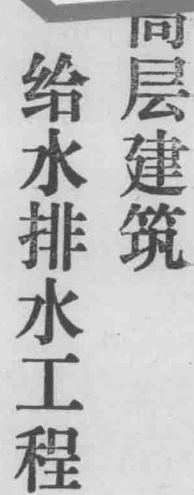 高层建筑
给水排水工程